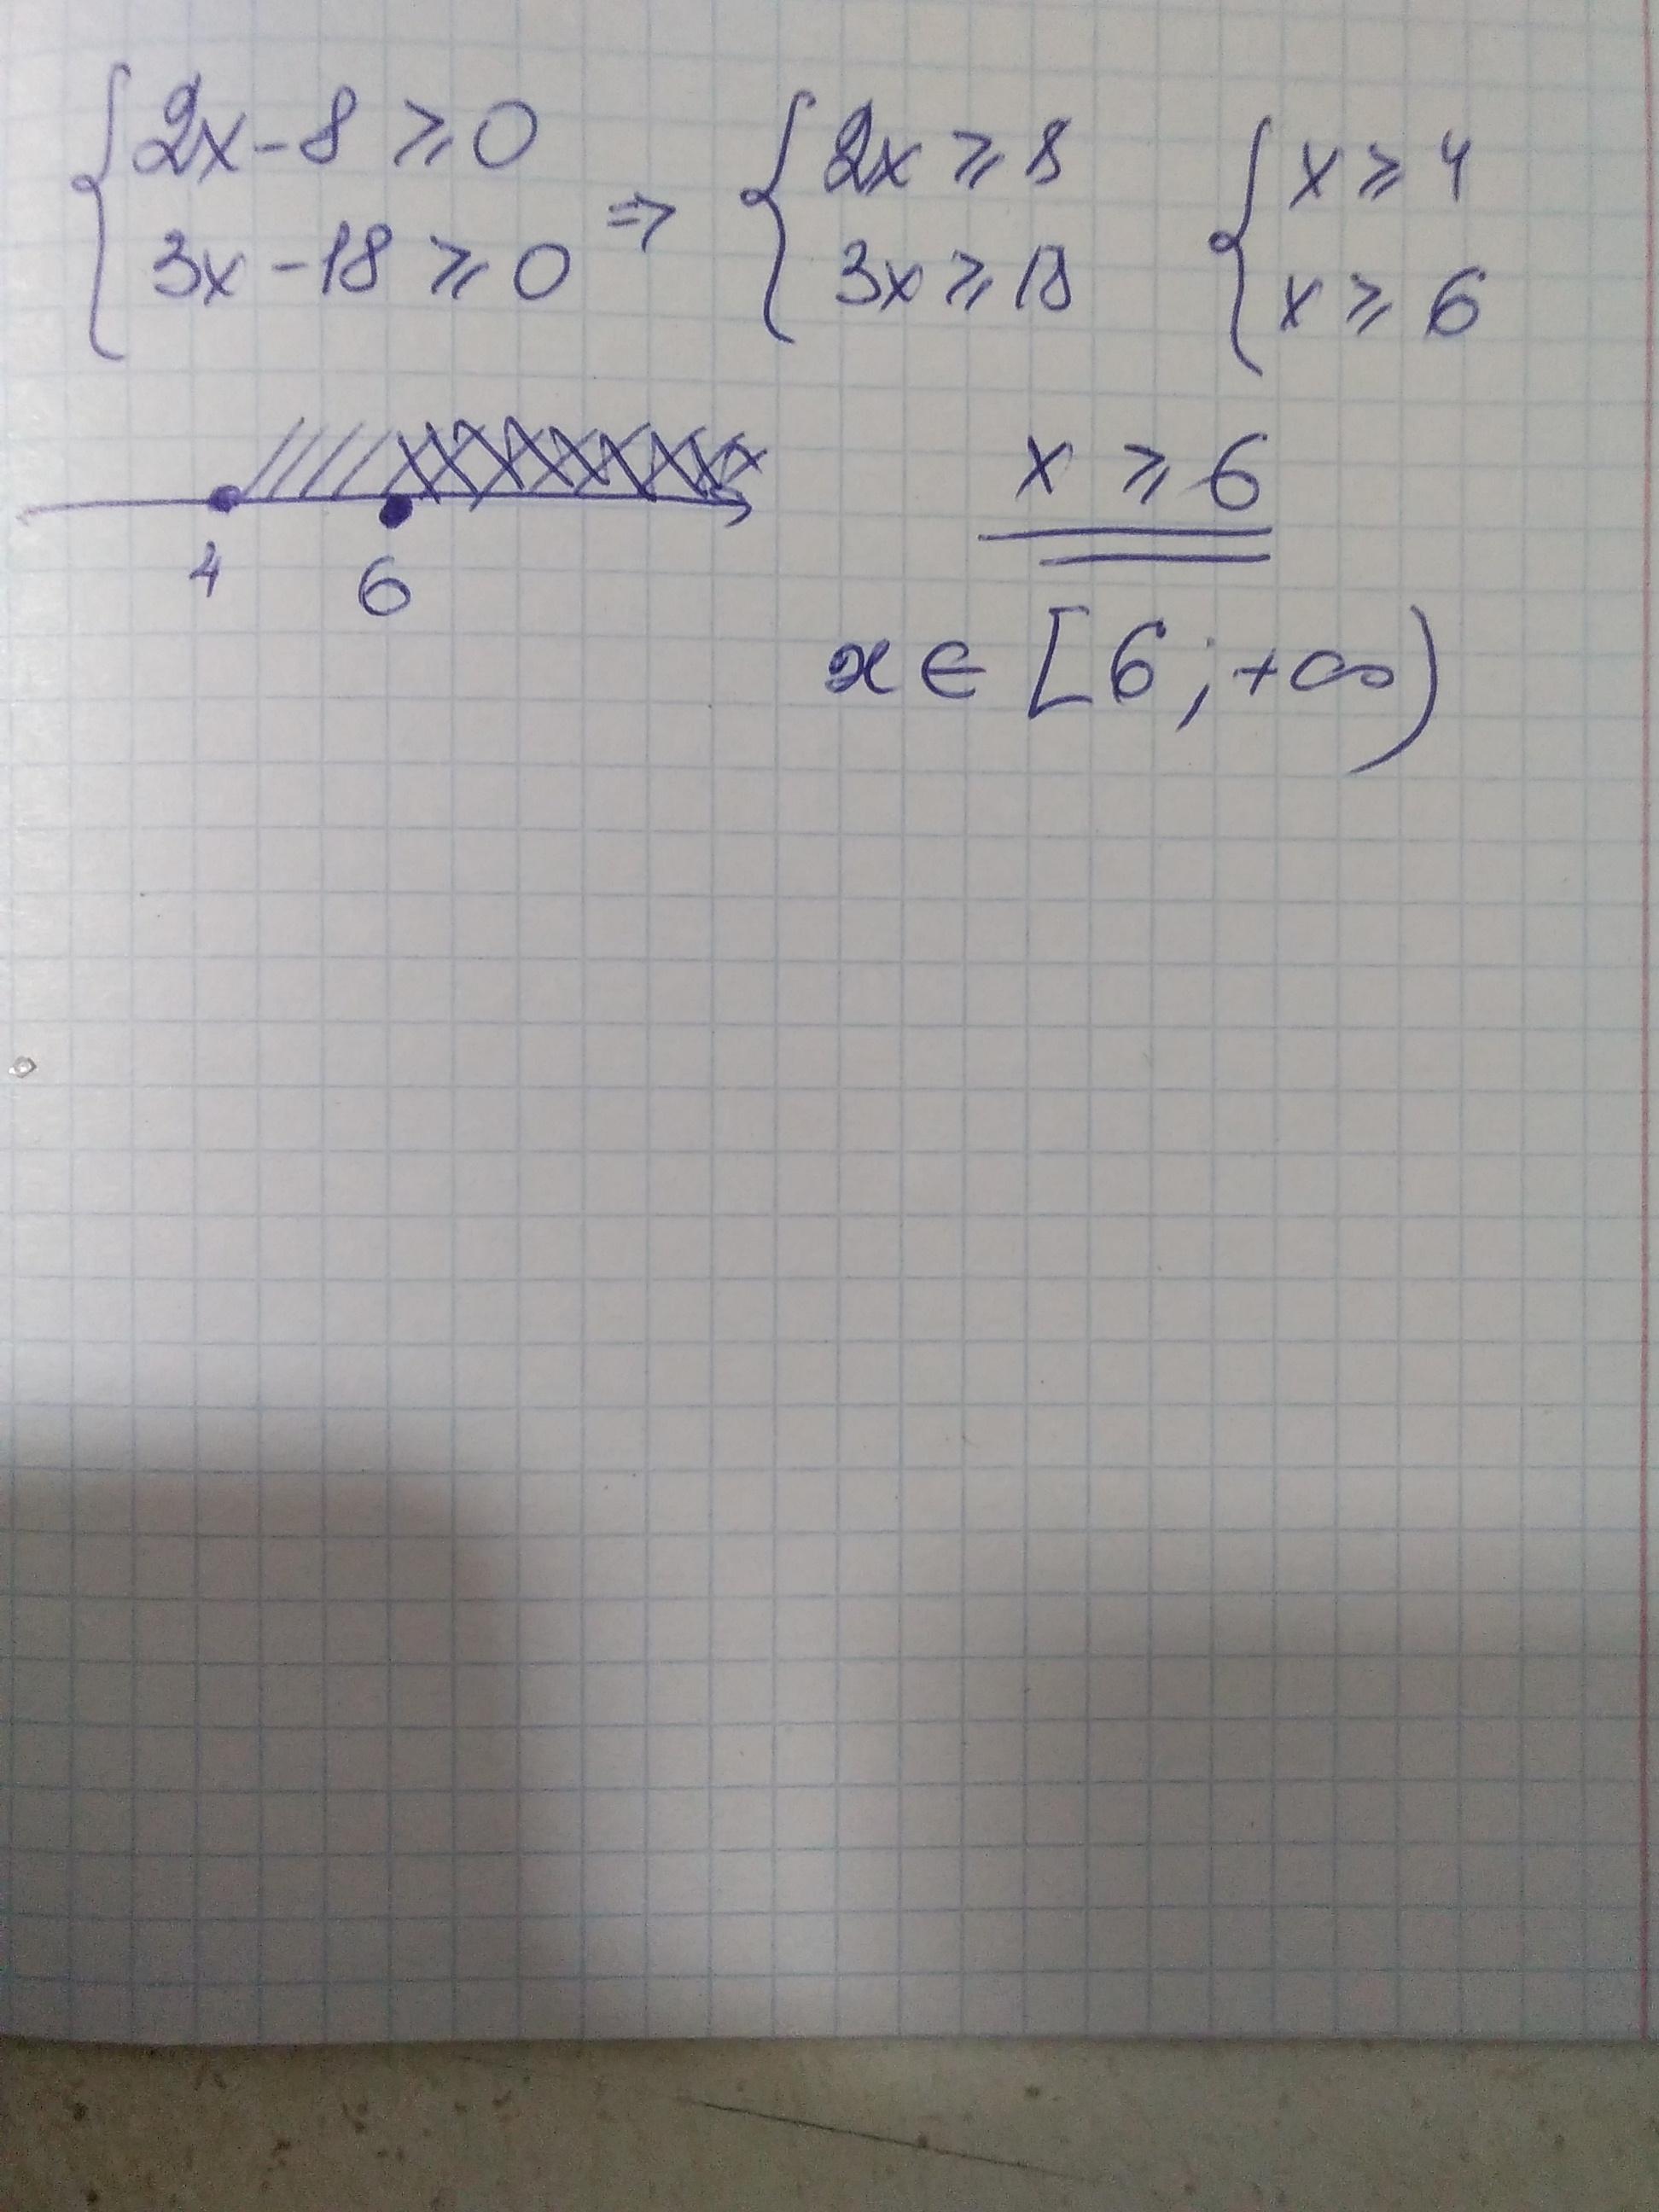 { 2x - 8 ⩾ 0
3x - 18 ⩾ 0 ⇒ { 2x ⩾ 8
3x ⩾ 18 { x ⩾ 4
x ⩾ 6
4 6
x ⩾ 6
x ∈ [6; +∞)